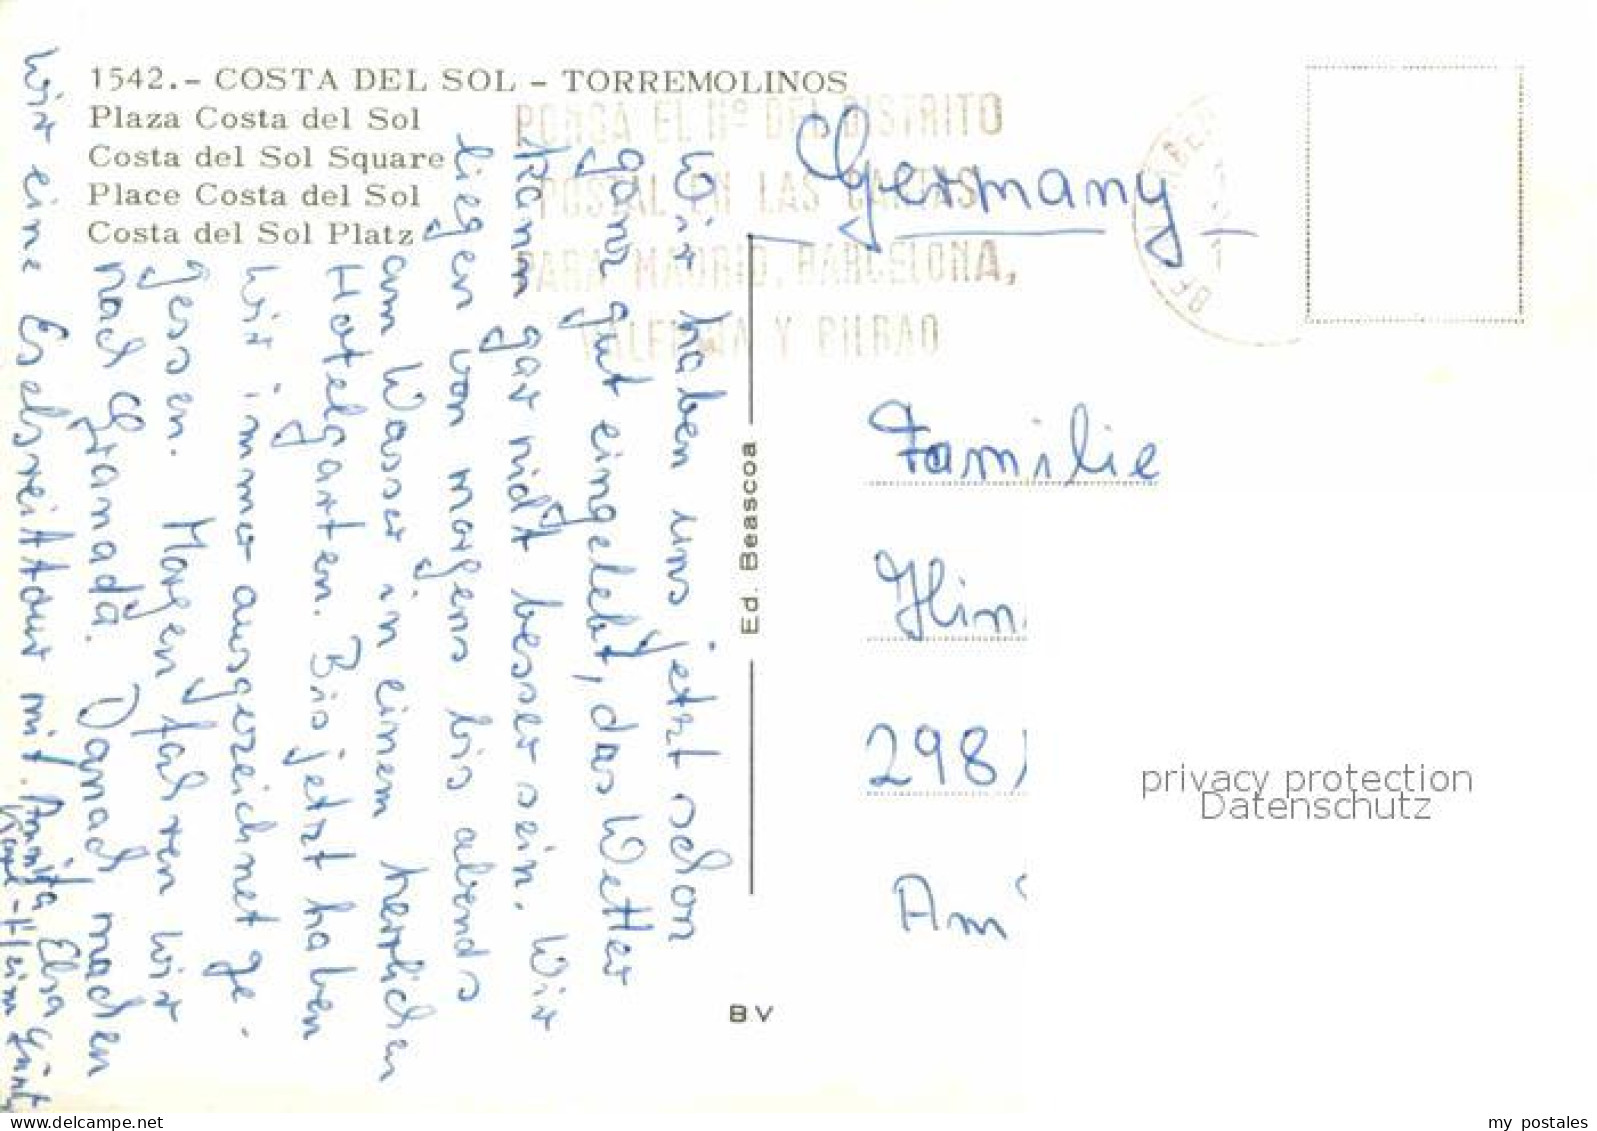 1542.- COSTA DEL SOL - TORREMOLINOS
Plaza Costa del Sol
Costa del Sol Square
Place Costa del Sol
Costa del Sol Platz
PONGA EL Nº DEL DISTRITO
POSTAL EN LAS CARTAS
PARA MADRID, BARCELONA,
VALENCIA Y BILBAO
Wir haben uns jetzt schon
ganz gut eingelebt, das Wetter
kann gar nicht besser sein. Wir
liegen von morgens bis abends
am Wasser in einem herrlichen
Hotelgarten. Bis jetzt haben
wir immer ausgezeichnet ge-
gessen. Morgen fahren wir
nach Granada. Danach machen
wir eine Eselsreittour mit. Annita Elsa
Karl-Heinz Günt
Ed. Beascoa
BV
Germany
Familie
Hin
298
Am
privacy protection
Datenschutz
my postales